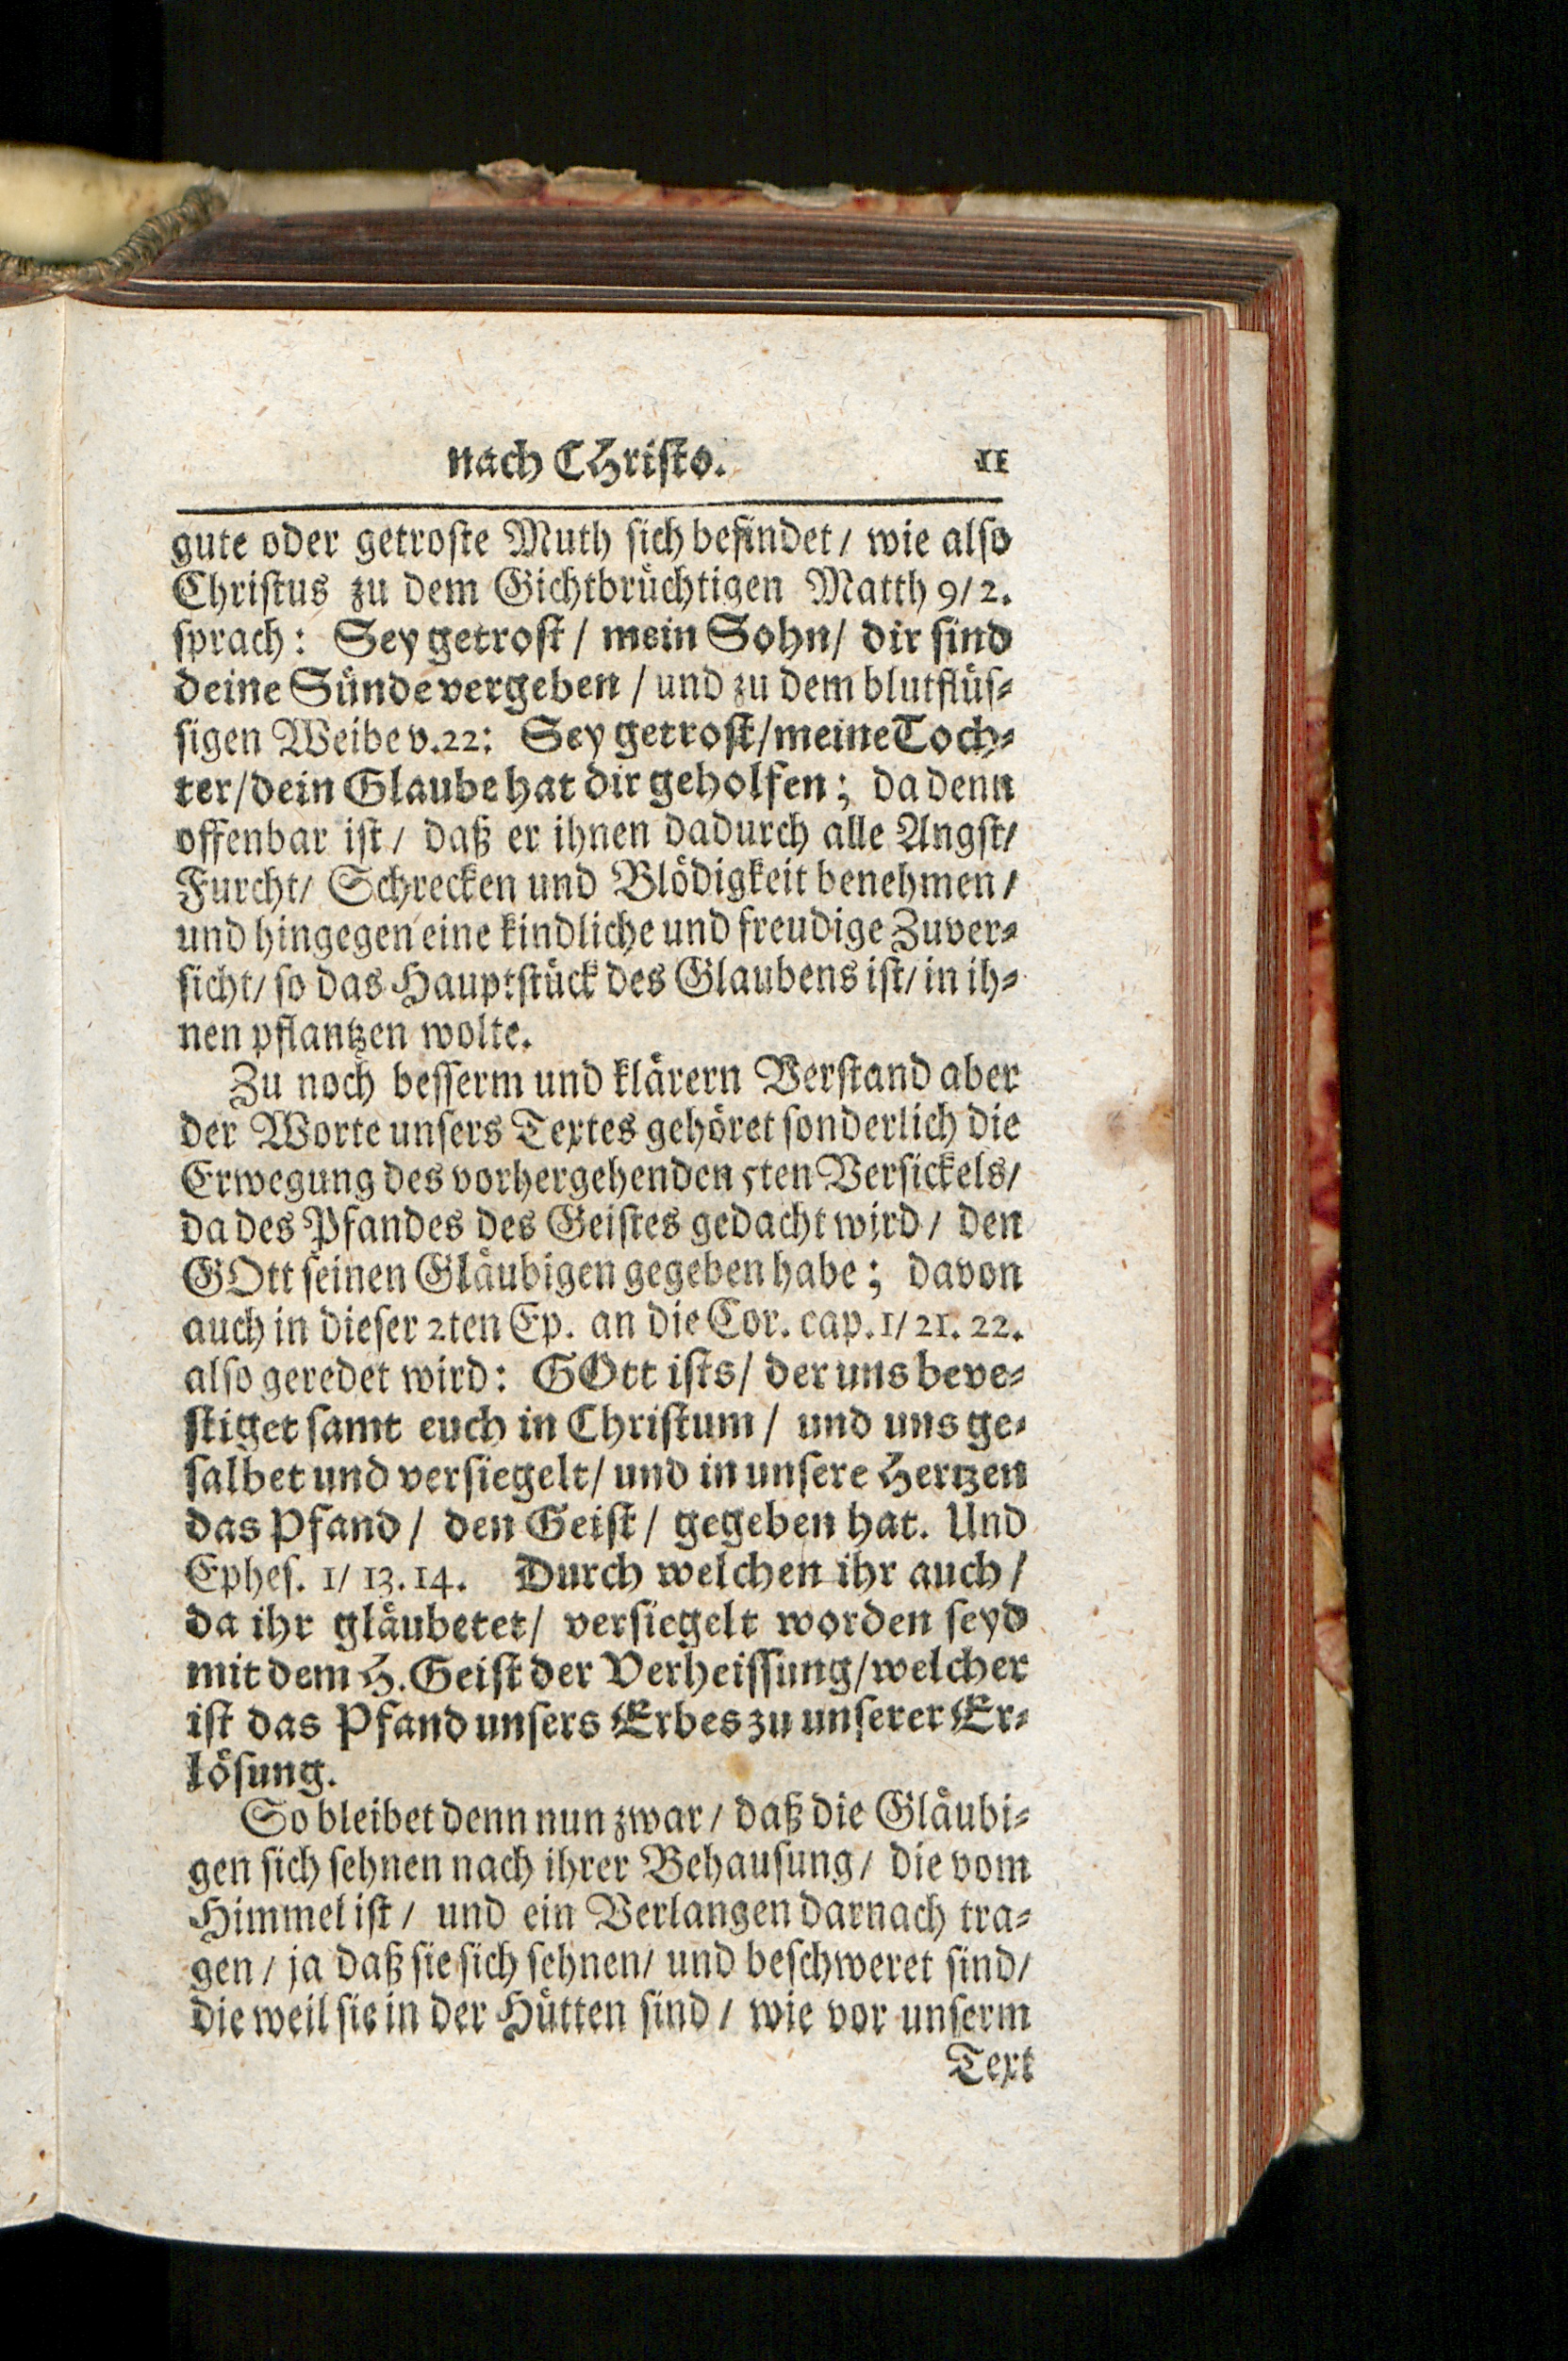 nach CHristo. 11
gute oder getroste Muth sich befindet / wie also
Christus zu dem Gichtbrüchtigen Matth 9/2.
sprach: Sey getrost / mein Sohn/ dir sind
deine Sünde vergeben / und zu dem blutflüs-
sigen Weibe v.22: Sey getrost/meine Toch-
ter/dein Glaube hat dir geholfen; da denn
offenbar ist / daß er ihnen dadurch alle Angst/
Furcht/ Schrecken und Blödigkeit benehmen /
und hingegen eine kindliche und freudige Zuver-
sicht/ so das Hauptstück des Glaubens ist/ in ih-
nen pflantzen wolte.
Zu noch besserm und klärern Verstand aber
der Worte unsers Textes gehöret sonderlich die
Erwegung des vorhergehenden 5ten Versickels/
da des Pfandes des Geistes gedacht wird / den
GOtt seinen Gläubigen gegeben habe; davon
auch in dieser 2ten Ep. an die Cor. cap.1/21. 22.
also geredet wird: GOtt ists/ der uns beve-
stiget samt euch in Christum / und uns ge-
salbet und versiegelt/ und in unsere Hertzen
das Pfand / den Geist / gegeben hat. Und
Ephes. 1/ 13. 14. Durch welchen ihr auch /
da ihr gläubetet/ versiegelt worden seyd
mit dem H. Geist der Verheissung/welcher
ist das Pfand unsers Erbes zu unserer Er-
lösung.
So bleibet denn nun zwar / daß die Gläubi-
gen sich sehnen nach ihrer Behausung / die vom
Himmel ist / und ein Verlangen darnach tra-
gen / ja daß sie sich sehnen/ und beschweret sind/
die weil sie in der Hütten sind / wie vor unserm
Text